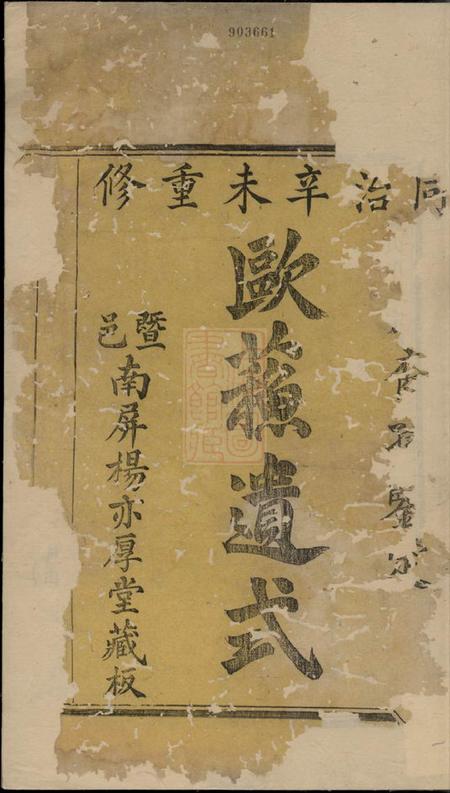 903661
同治辛未重修
鑒定
歐蘓遺式
暨邑南屏楊亦厚堂藏板